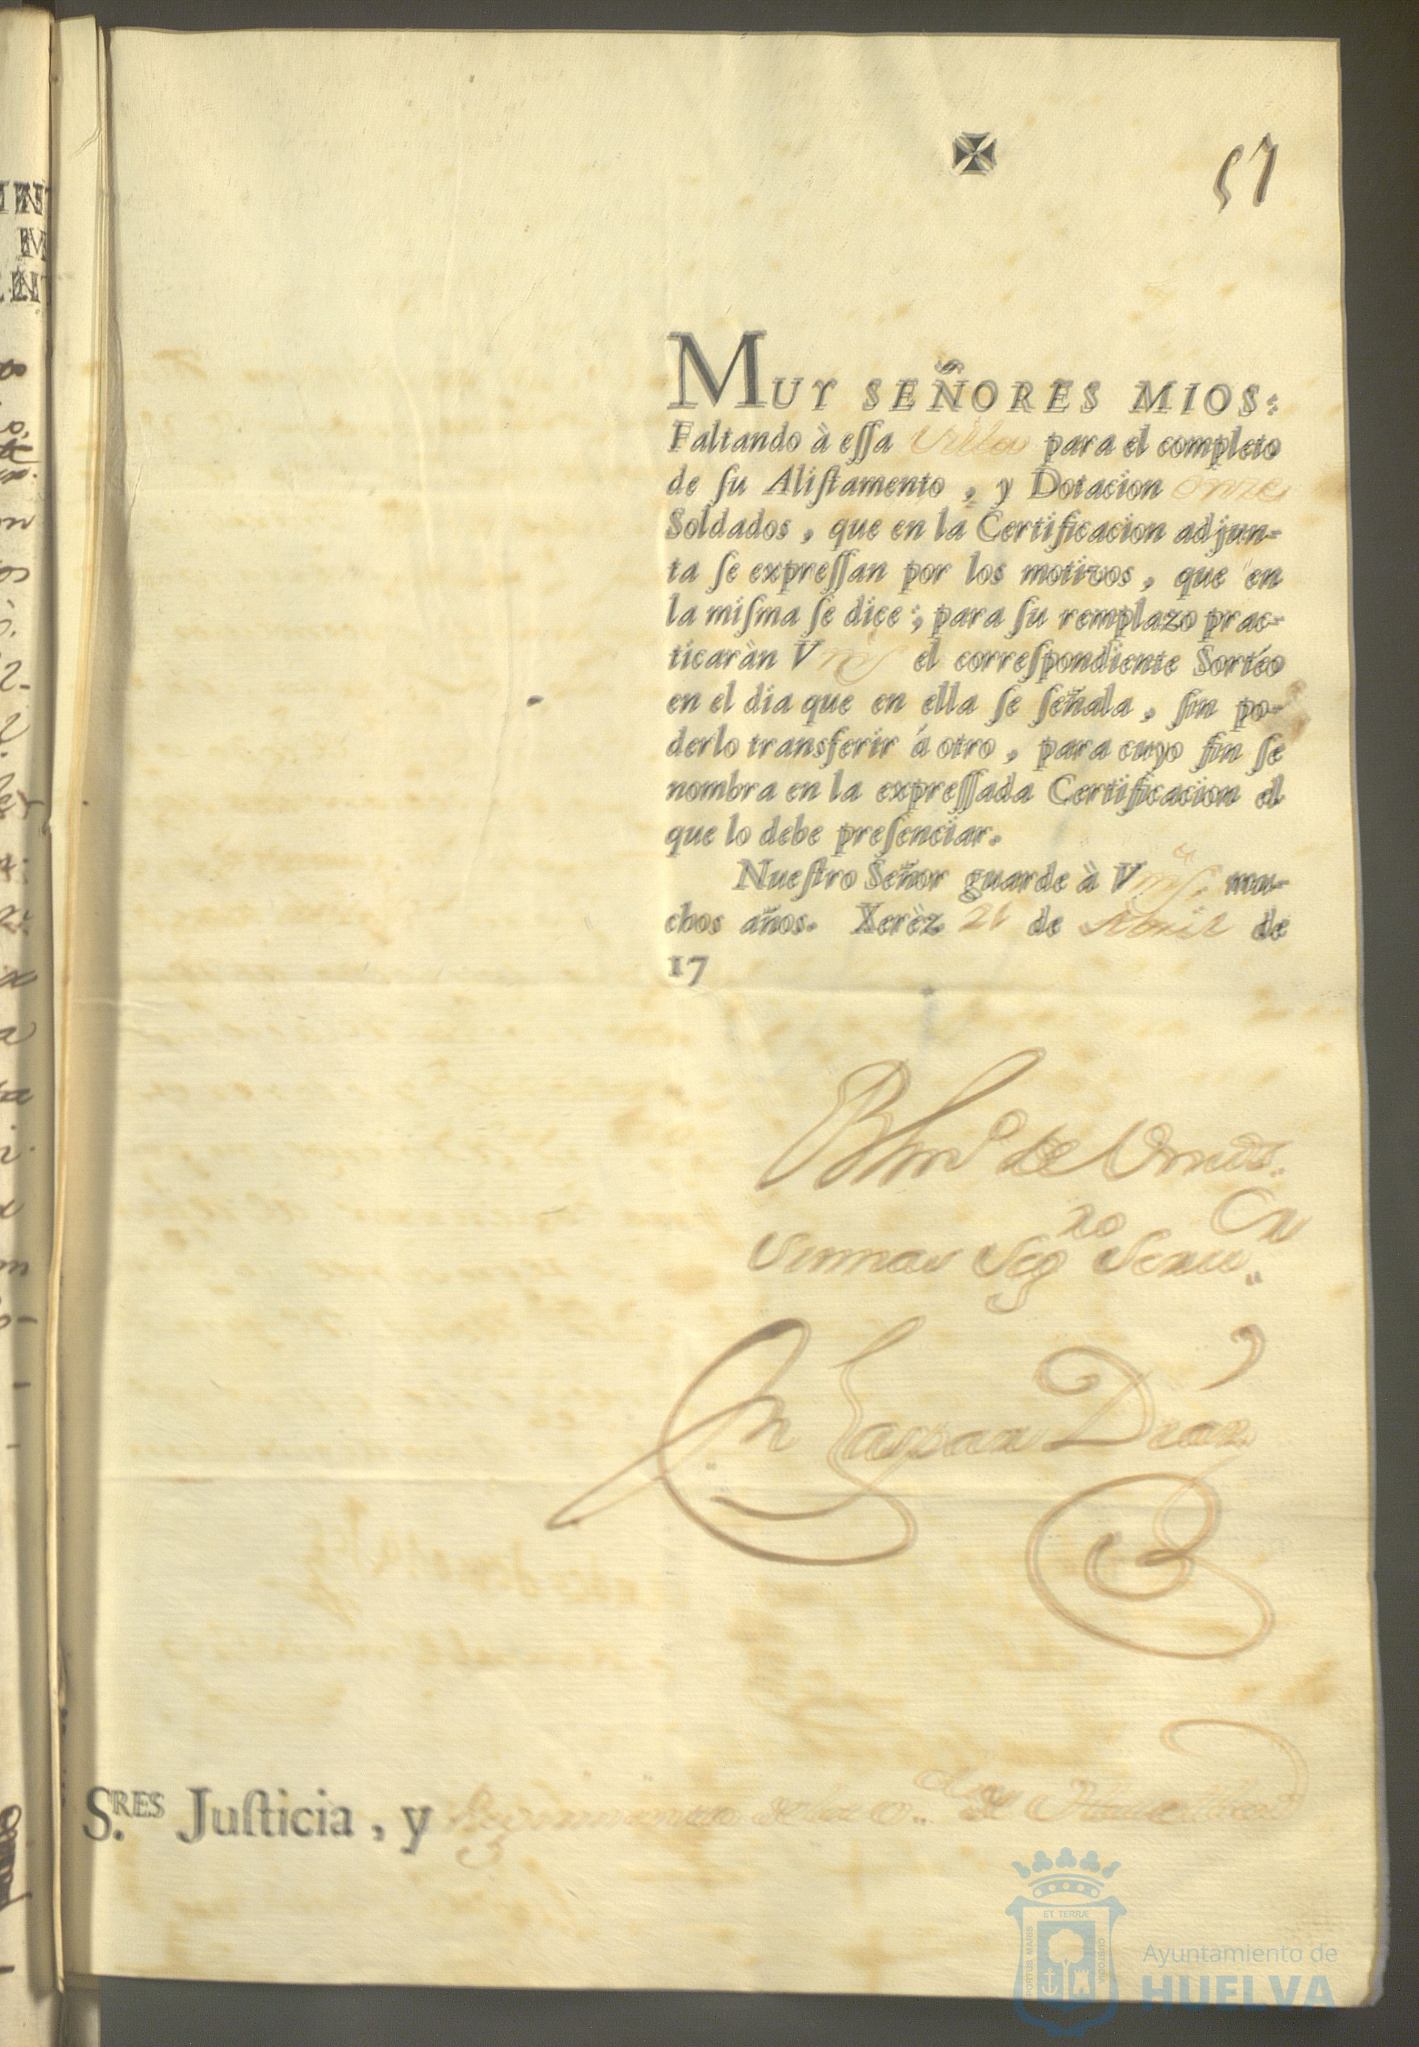 57
MUY SEÑORES MIOS:
Faltando à eſſa Villa para el completo
de ſu Aliſtamento, y Dotacion onze
Soldados, que en la Certificacion adjun-
ta ſe expreſſan por los motivos, que en
la miſma ſe dice; para ſu remplazo prac-
ticaràn Vms el correſpondiente Sortéo
en el dia que en ella ſe ſeñala, ſin po-
derlo transferir á otro, para cuyo fin ſe
nombra en la expreſſada Certificacion el
que lo debe preſenciar.
Nueſtro Señor guarde à Vms. mu-
chos años. Xerèz 21 de Abril de
17
de Vmds.
Seg.ro Serv.
Gaspar Diaz
S.RES Juſticia, y Regimiento de la
ET TERRÆ
PORTUS MARIS
CUSTODIA
Ayuntamiento de
HUELVA